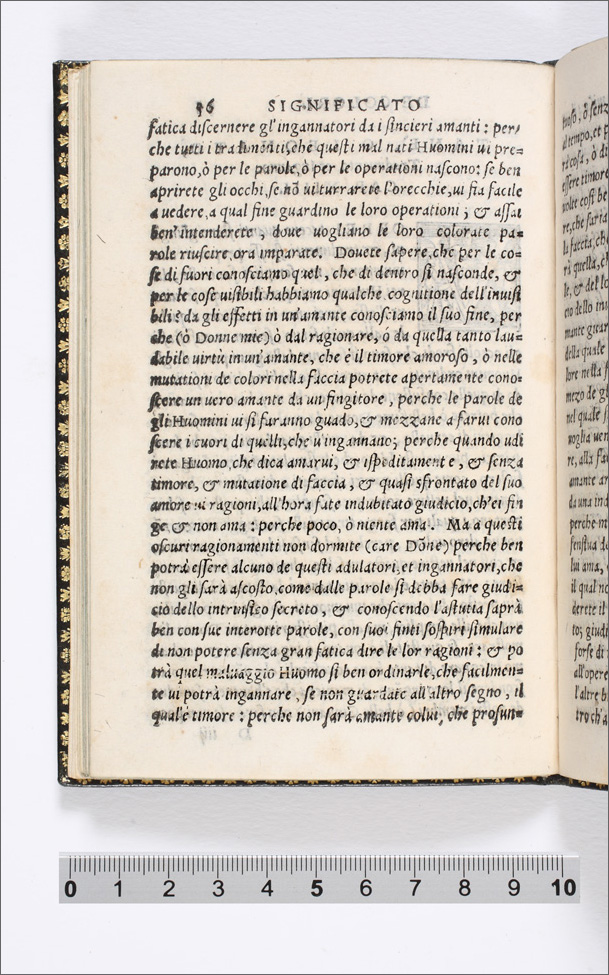 36 SIGNIFICATO
fatica discernere gl'ingannatori da i sincieri amanti : per,
che tutti i tradimenti, che questi mal nati Huomini ui pre=
parono, ò per le parole, ò per le operationi nascono: se ben
aprirete gli occhi, se nō ui turrarete l'orecchie, ui fia facile
a uedere, a qual fine guardino le loro operationi ; & assai
ben' intenderete , doue uogliano le loro colorate pa=
role riuscire, ora imparate. Douete sapere, che per le co=
se di fuori conosciamo quel , che di dentro si nasconde, &
per le cose uisibili habbiamo qualche cognitione dell'inuisi
bili : da gli effetti in un'amante conosciamo il suo fine, per
che (ò Donne mie) ò dal ragionare, ó da quella tanto lau=
dabile uirtù in un'amante, che è il timore amoroso , ò nelle
mutationi de colori nella faccia potrete apertamente cono=
scere un uero amante da un fingitore , perche le parole de
gli Huomini ui si faranno guado, & mezzane a farui cono
scere i cuori di quelli, che u'ingannano; perche quando udi
rete Huomo che dica amarui, & ispeditamente , & senza
timore, & mutatione di faccia , & quasi sfrontato del suo
amore ui ragioni, all'hora fate indubitato giudicio, ch'ei fin
ge & non ama : perche poco, ò niente ama . Ma a questi
oscuri ragionamenti non dormite (care Dōne) perche ben
potrà essere alcuno de questi adulatori, et ingannatori, che
non gli sarà ascosto, come dalle parole si debba fare giudi=
cio dello secreto , & conoscendo l'astutia saprà
ben con sue interotte parole, con suoi finti sospiri simulare
di non potere senza gran fatica dire le lor ragioni : & po
trà quel maluaggio Huomo si ben ordinarle, che facilmen=
te ui potrà ingannare , se non guardate all'altro segno , il
qual'è timore : perche non sarà amante colui, che prosun=
0 1 2 3 4 5 6 7 8 9 10